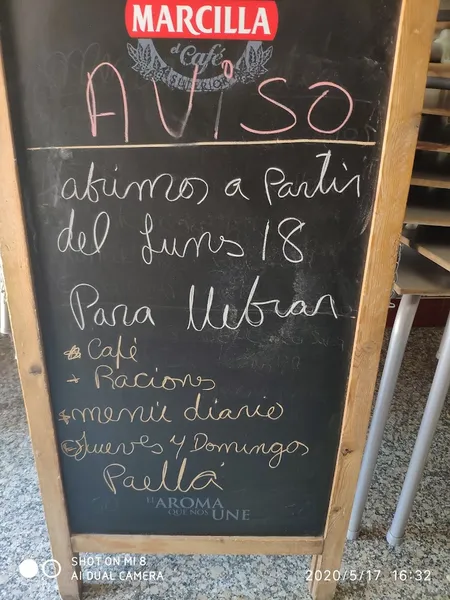 MARCILLA
el Café
AViSO
abrimos a Partir
del Luns 18
Para llebrar
Café
Raciones
menú diario
Jueves y Domingos
Paella
EL AROMA
QUE NOS UNE
SHOT ON MI 8
AI DUAL CAMERA
2020/5/17 16:32